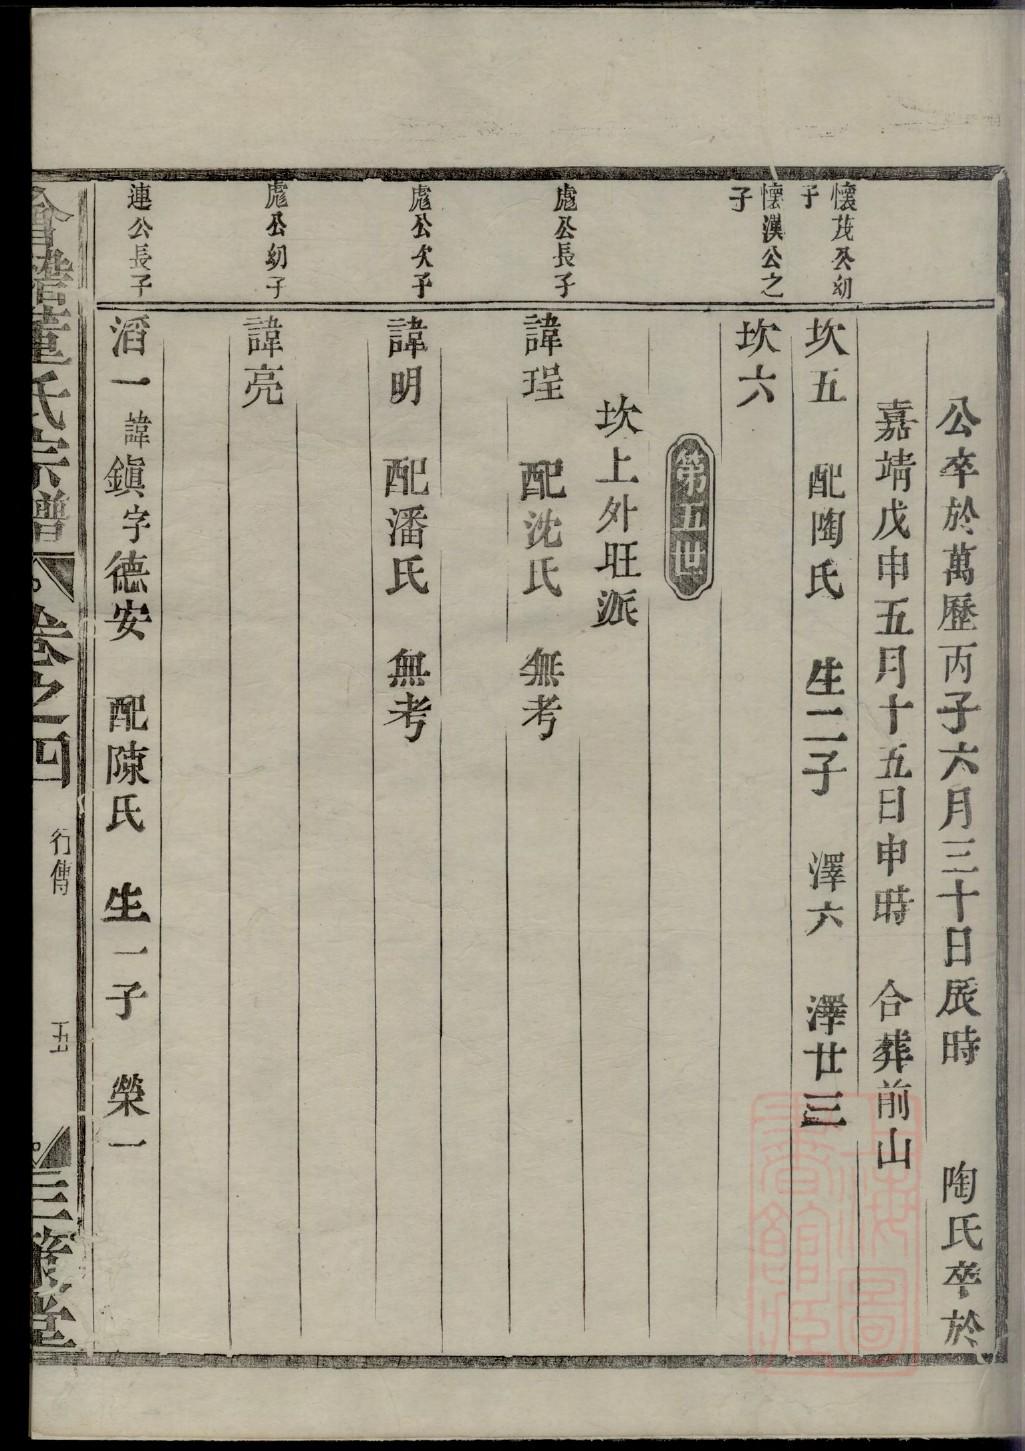 公卒於萬歷丙子六月三十日辰時　陶氏卒於
嘉靖戊申五月十五日申時　合葬前山
懷茂公幼子
坎五　配陶氏　生二子　澤六　澤廿三
懷漢公之子
坎六
第五世
坎上外旺派
處公長子
諱珵　配沈氏　無考
處公次子
諱明　配潘氏　無考
處公幼子
諱亮
連公長子
滔一　諱鎭字德安　配陳氏　生一子　榮一
會稽董氏宗譜　卷之四　行傳　五　三策堂